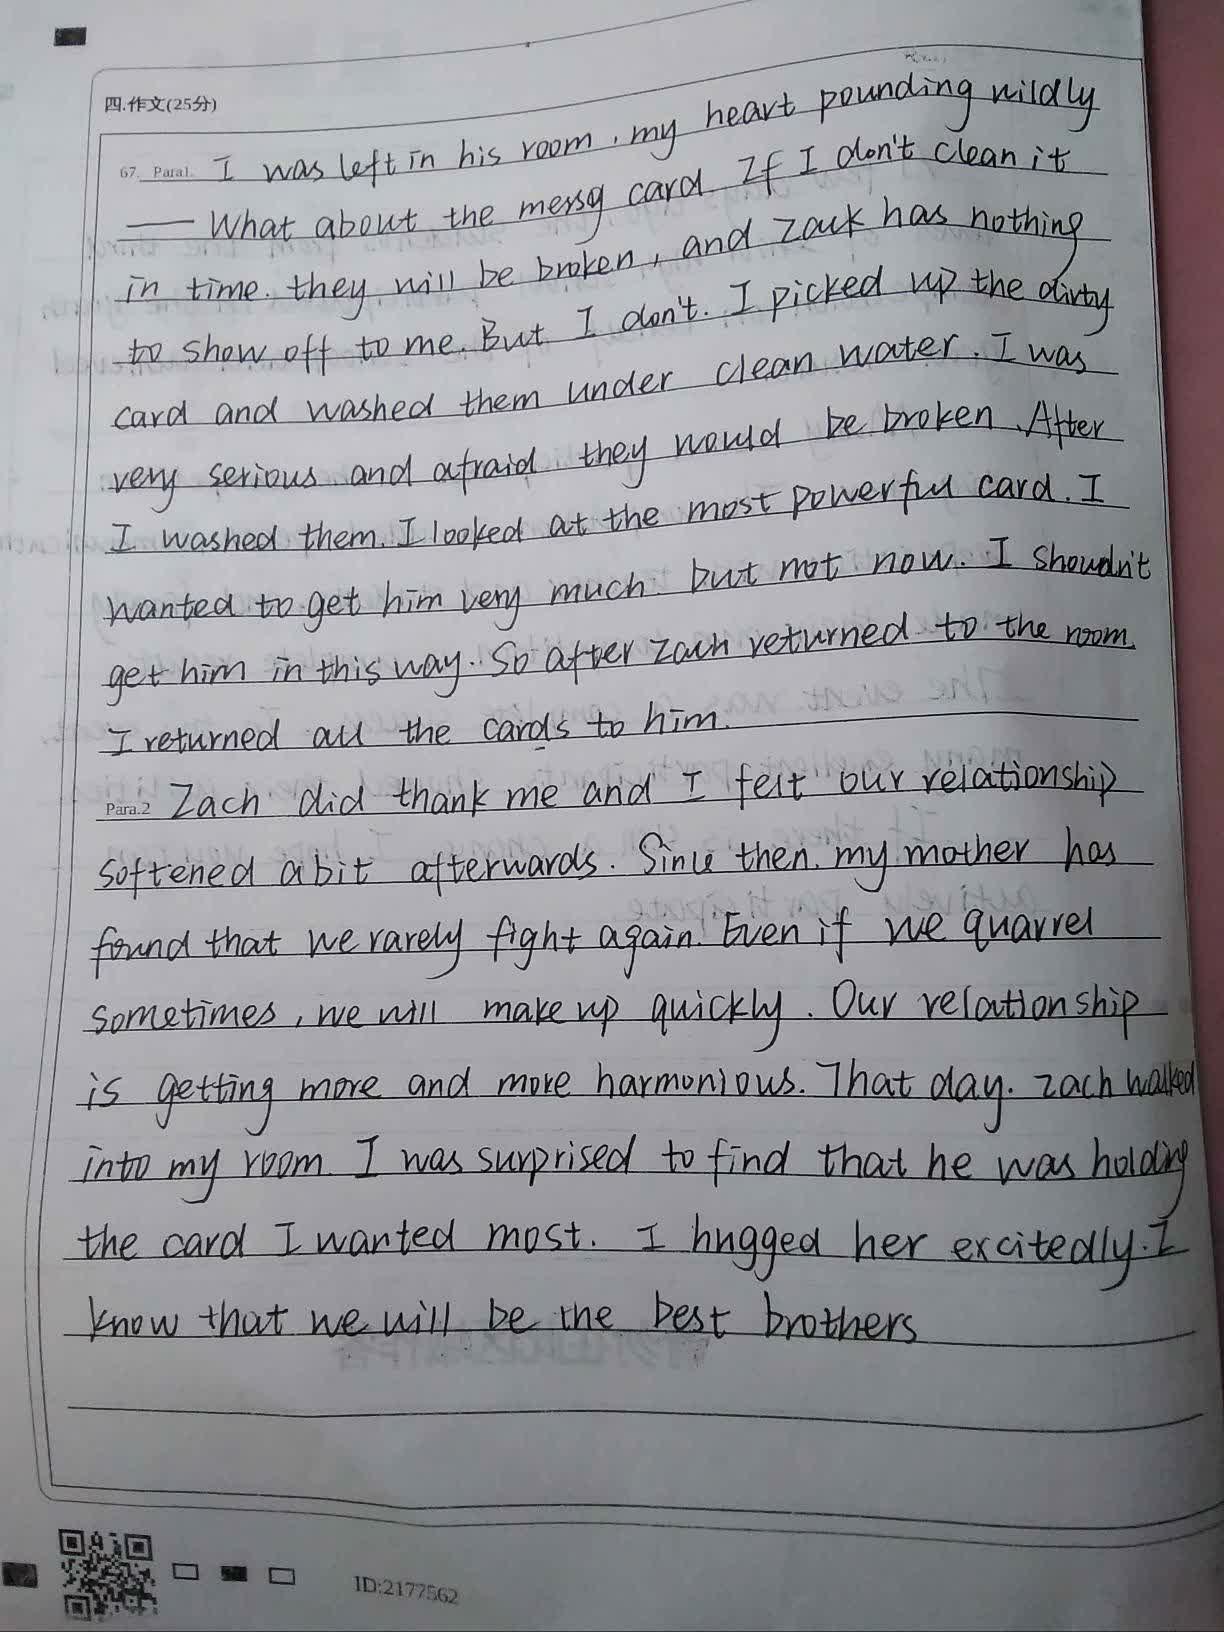 四.作文(25分)
67. Para1. I was left in his room, my heart pounding wildly
—— What about the messg card. If I don't clean it
in time. they will be broken, and Zack has nothing
to show off to me. But I don't. I picked up the dirty
card and washed them under clean water. I was
very serious and afraid they would be broken. After
I washed them. I looked at the most powerful card. I
wanted to get him very much. but not now. I shoudn't
get him in this way. So after Zach returned to the room.
I returned all the cards to him.
Para.2 Zach did thank me and I felt our relationship
softened a bit afterwards. Since then. my mother has
found that we rarely fight again. Even if we quarrel
sometimes, we will make up quickly. Our relationship
is getting more and more harmonious. That day. Zach walked
into my room. I was surprised to find that he was holding
the card I wanted most. I hugged her excitedly. I
know that we will be the best brothers
ID:2177562